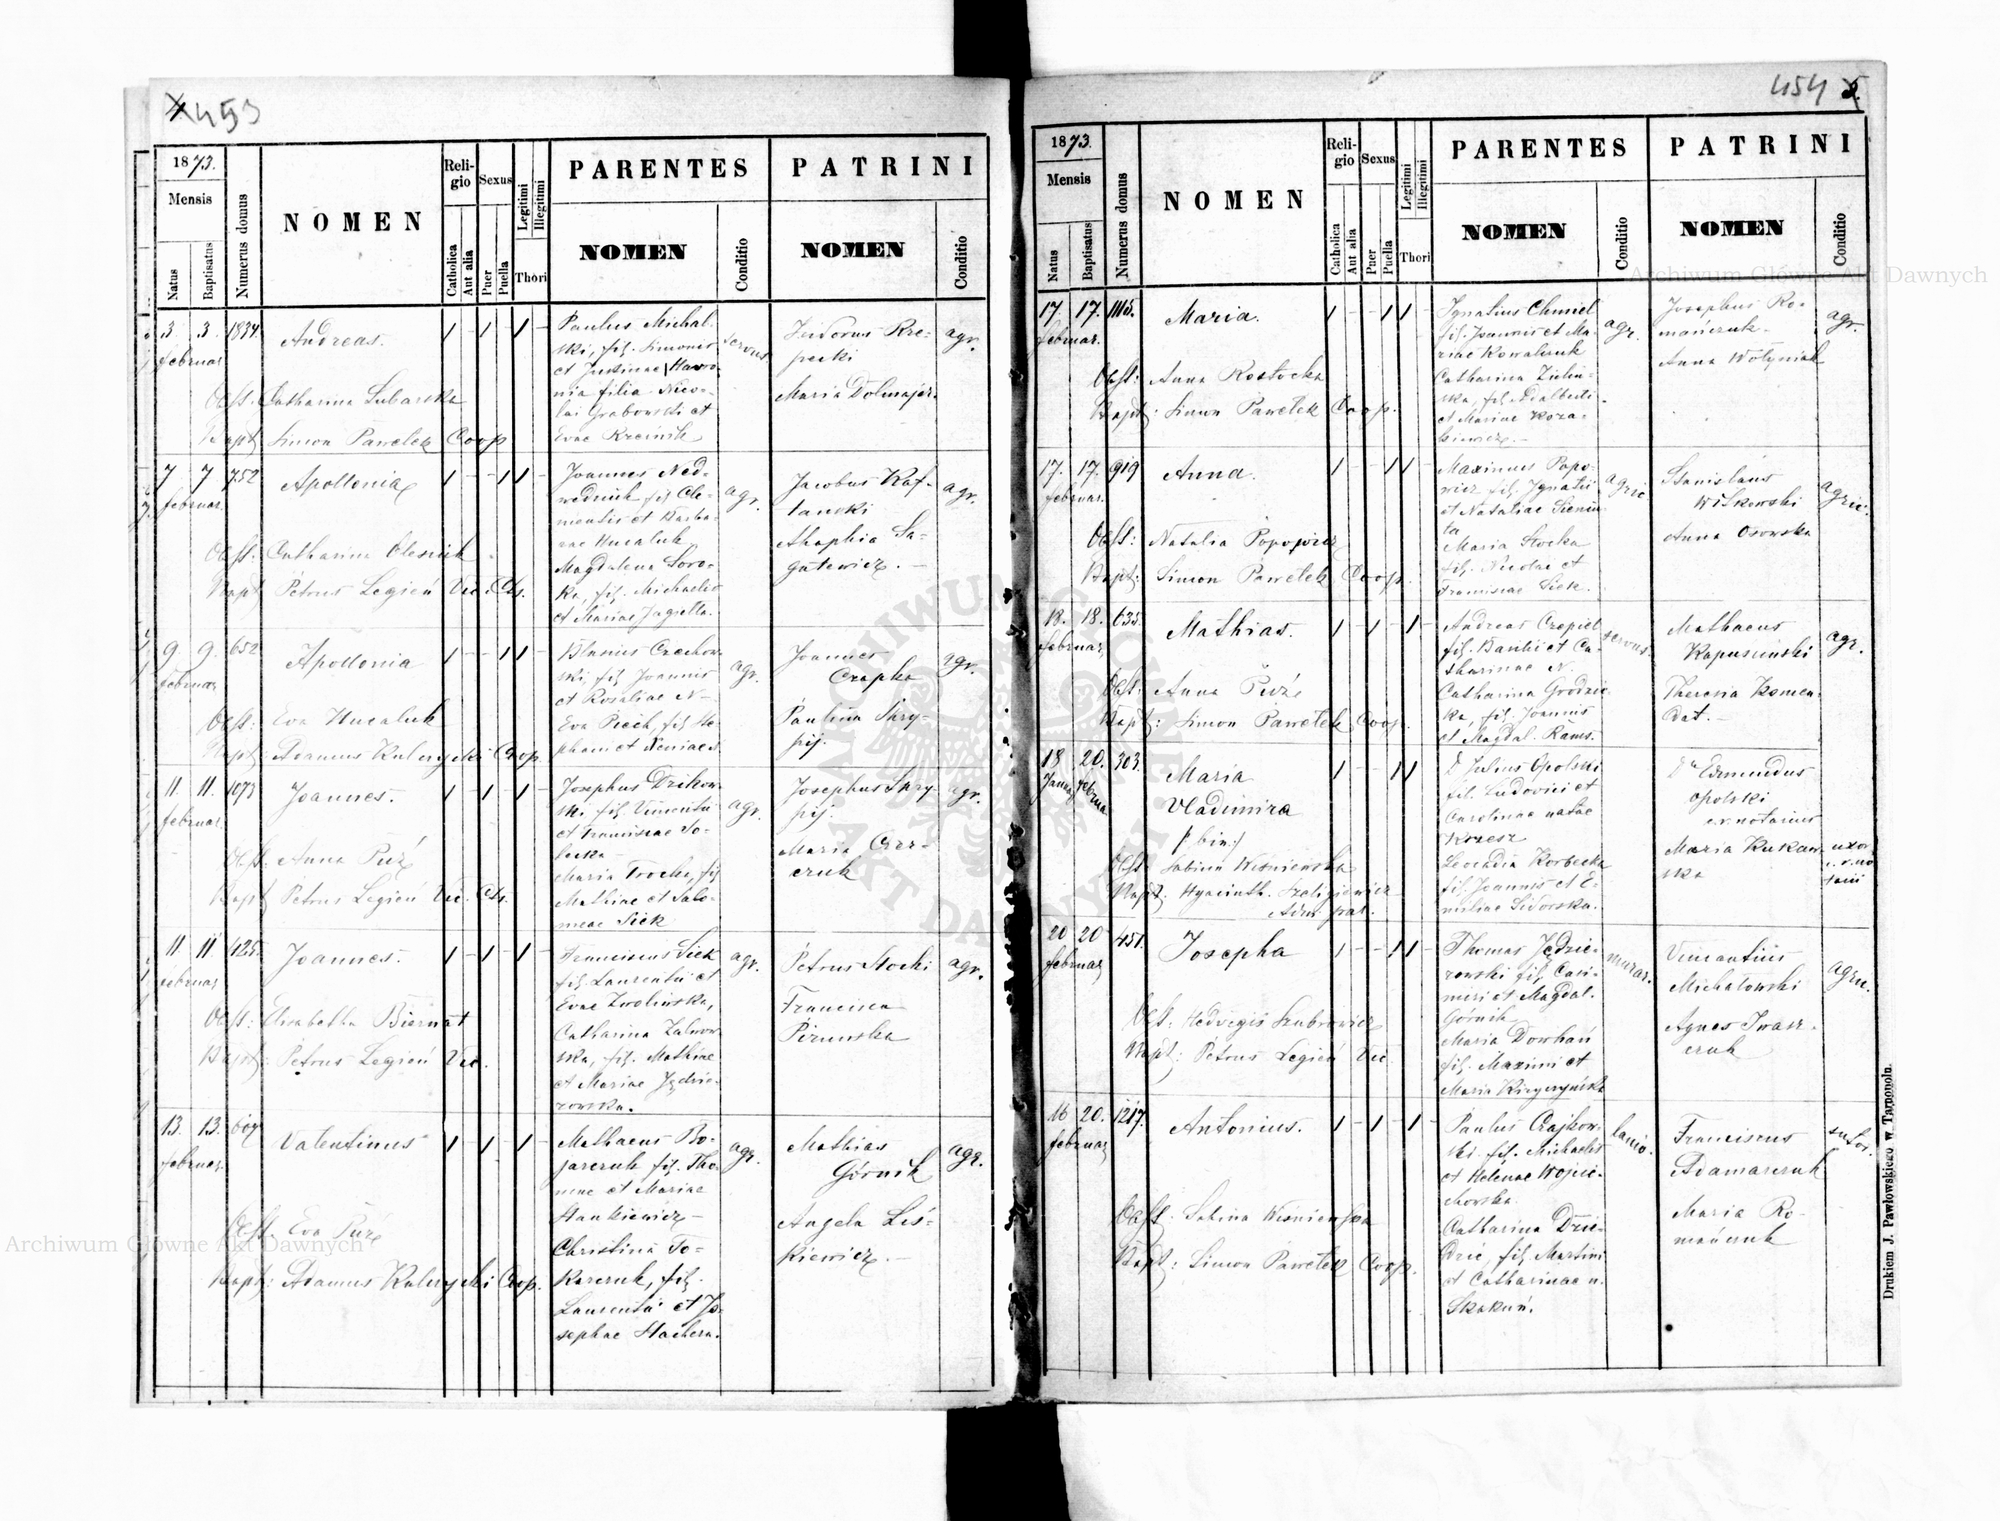 453
1873.
Mensis
Natus
Baptisatus
Numerus domus
NOMEN
Religio
Catholica
Aut alia
Sexus
Puer
Puella
Legitimi
Illegitimi
Thori
PARENTES
NOMEN
Conditio
PATRINI
NOMEN
Conditio
3 3. 1834
februar.
Andreas.
Obst. Catharina Lubarska
Bapt Simon Pawełek Coop
Paulus Michal-
ski, fil. Simonis
et Justinae, Hawro-
nia filia Nico-
lai Grabowski et
Evae Krzeinik
servus
Isidorus Krze-
pecki
Maria Dolmajer.
agr.
7 7 752
februar.
Apollonia
Obst. Catharina Olesnik
Bapt Petrus Legień Vic. Cts.
Joannes Ned-
wedniuk fil Cle-
mentis et Barba-
rae Hucaluk
Magdalena Soro-
ka, fil. Michaelis
et Mariae Jagiełła.
agr.
Jacobus Kaf-
tanski
Ahaphia Sa-
gatewicz.
agr.
9 9. 652
februar
Apollonia
Obst: Eva Hucaluk
Bapt Adamus Kulczycki Coop.
Blasius Czechow-
ski, fil Joannis
et Rosaliae N-
Eva Piech, fil. Ste-
phani et Xeniae N
agr.
Joannes
Czapka
Paulina Spry-
pij.
agr.
11 11. 1073
februar.
Joannes.
Obst. Anna Puź
Bapt Petrus Legień Vic. Cts.
Josephus Dzikow-
ski fil. Vincentii
et Franciscae So-
Maria Trocki, fil
Mathiae et Salo-
meae Siek
agr.
Josephus Spry-
pij.
Maria Czer-
czuk
agr.
11 11. 425.
februar
Joannes.
Obst: Elisabetha Biernat
Bapt: Petrus Legień Vic.
Franciscus Siek
fil. Laurentii et
Evae Zwolinska,
Catharina Zalew-
ska, fil. Mathiae
et Mariae Jędrze-
rowska.
agr.
Petrus Stocki
Francisca
Piramska
agr.
13. 13. 607
februar.
Valentinus
Obst. Eva Puź
Bapt: Adamus Kulczycki Coop.
Mathaeus Bo-
jarczuk fil. Tho-
mae et Mariae
Stankiewicz-
Christina To-
karczuk, fil.
Laurentii et Jo-
sephae Stachera.
agr.
Mathias
Górnik
Angela Leś-
kiewicz.
agr.
454
1873.
Mensis
Natus
Baptisatus
Numerus domus
NOMEN
Religio
Catholica
Aut alia
Sexus
Puer
Puella
Legitimi
Illegitimi
Thori
PARENTES
NOMEN
Conditio
PATRINI
NOMEN
Conditio
17. 17. 1115.
februar.
Maria.
Obst: Anna Rostocka
Bapt: Simon Pawełek Coop.
Ignatius Chmiel
fil. Joannis et Ma-
riae Kowalczuk
Catharina Zielin-
ska, fil. Adalberti
et Mariae Koza-
kiewicz.
agr.
Josephus Ro-
mańczuk.
Anna Wołyniak
agr.
17. 17. 919
februar.
Anna.
Obst: Natalia Popowicz
Bapt: Simon Pawełek Coop.
Maximus Popo-
wicz fil. Ignatii
et Nataliae Sienin-
ta
Maria Stocka
fil. Nicolae et
Franciscae Siek.
agric
Stanislaus
Witkowski
Anna Osowska
agric.
18. 18. 635.
februar,
Mathias.
Obst: Anna Puź
Bapt: Simon Pawełek Coop.
Andreas Czepiel
fil. Basilii et Ca-
tharinae N.
Catharina Grodzic-
ka, fil. Joannis
et Magdal. Kams.
servus
Mathaeus
Kapuscinski
Theresia Komen-
dat.
agr.
18 20. 303.
Januar februar
Maria
Vladimira
/: bin:/
Obst: Sabina Wiśniewska
Bapt: Hyacinth. Szeligiewicz
Adm par.
D Julius Opolski
fil. Ludovici et
Carolinae natae
Krzesz
Leocadia Korbecka
fil. Joannis et E-
miliae Sidorska.
Dn Edmundus
Opolski
c.r. notarius
Maria Kukaw-
ska
uxor
c. r. no
tarii
20 20 451.
februar,
Josepha
Obst: Hedvigis Szubrowicz
Bapt: Petrus Legień Vic
Thomas Jędrze-
rowski fil. Casi-
miri et Magdal.
Górnik
Maria Dowhań
fil. Maximi et
Maria Kirzyzyńska
murar.
Vincentius
Michałowski
Agnes Iwasz-
czuk
agric.
16 20. 1217.
februar,
Antonius.
Obst: Sabina Wiśniewska
Bapt: Simon Pawełek Coop.
Paulus Czajkow-
ski fil. Michaelis
et Helenae Wojcie-
chowska.
Catharina Dzie-
dzic, fil. Martini
et Catharinae n.
Skakuń.
lanio.
Franciscus
Adamarczuk
Maria Ro-
mańczuk
sutor.
Drukiem J. Pawłowskiego w Tarnopolu.
Archiwum Główne Akt Dawnych
Archiwum Główne Akt Dawnych
ARCHIWUM GŁÓWNE AKT DAWNYCH